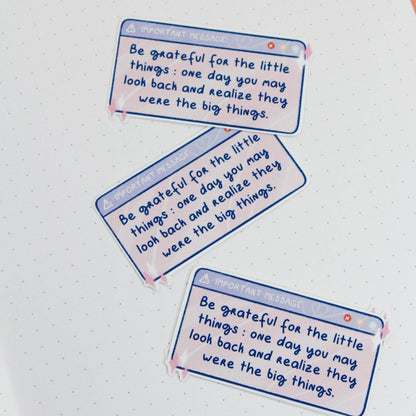 IMPORTANT MESSAGE
Be grateful for the little
things : one day you may
look back and realize they
were the big things.
IMPORTANT MESSAGE
Be grateful for the little
things : one day you may
look back and realize they
were the big things.
IMPORTANT MESSAGE
Be grateful for the little
things : one day you may
look back and realize they
were the big things.